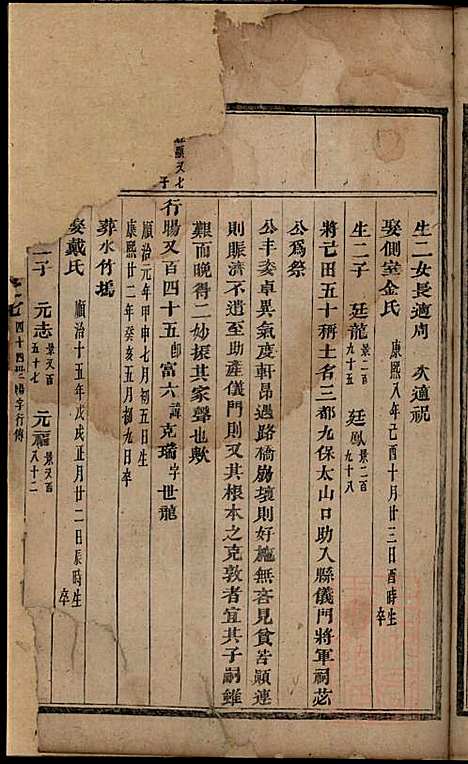 生二女長適周　次適祝
娶側室金氏　康熙八年己酉十月廿三日酉時生　卒
生二子　廷龍景二百九十五　廷鳳景二百九十八
將己田五十稱土名三都九保太山口助入縣儀門將軍祠苾
公爲祭
公丰姿卓異氣度軒昂遇路橋崩壞則好施無吝見貧苦顛連
則賑濟不遺至助產儀門則又其根本之克敦者宜其子嗣雖
艱而晚得二妙振其家聲也歟
又七
子
行暘又百四十五郎富六諱克瑞字世龍
順治元年甲申七月初五日生
康熙廿二年癸亥五月初九日卒
葬水竹塢
娶戴氏　順治十五年戊戌正月廿二日辰時生　卒
二子　元志景又百五十七　元福景又百八十二
四十四世暘字行傳